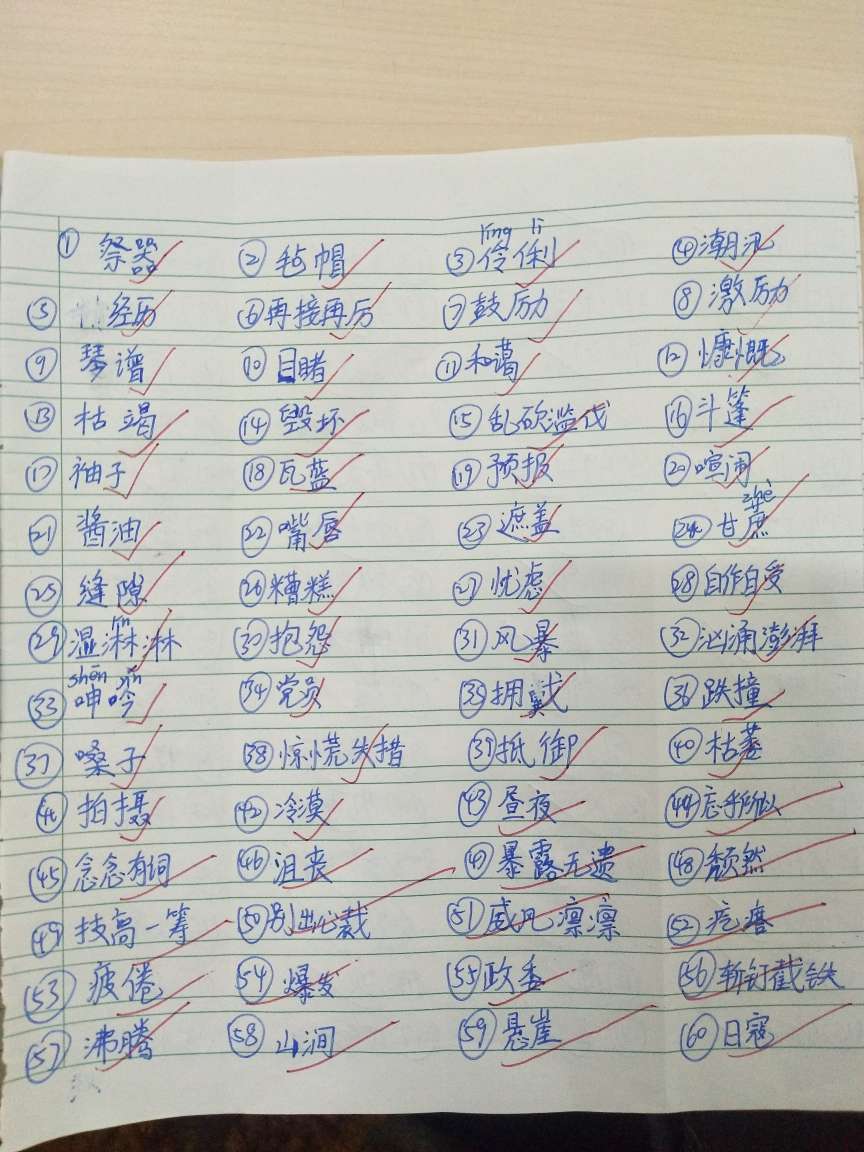 líng lì
① 祭器 ② 毡帽 ③ 伶俐 ④ 潮汛
⑤ 经历 ⑥ 再接再厉 ⑦ 鼓励 ⑧ 激励
⑨ 琴谱 ⑩ 目睹 ⑪ 和蔼 ⑫ 慷慨
⑬ 枯竭 ⑭ 毁坏 ⑮ 乱砍滥伐 ⑯ 斗篷
⑰ 袖子 ⑱ 瓦蓝 ⑲ 预报 ⑳ 喧闹
zhè
21 酱油 22 嘴唇 23 遮盖 24 甘蔗
25 缝隙 26 糟糕 27 忧虑 28 自作自受
lín
29 湿淋淋 30 抱怨 31 风暴 32 汹涌澎湃
shēn yín
33 呻吟 34 党员 35 拥戴 36 跌撞
37 嗓子 38 惊慌失措 39 抵御 40 枯萎
41 拍摄 42 冷漠 43 昼夜 44 忘乎所以
45 念念有词 46 沮丧 47 暴露无遗 48 颓然
49 技高一筹 50 别出心裁 51 威风凛凛 52 疙瘩
53 疲倦 54 爆发 55 政委 56 斩钉截铁
57 沸腾 58 山涧 59 悬崖 60 日寇